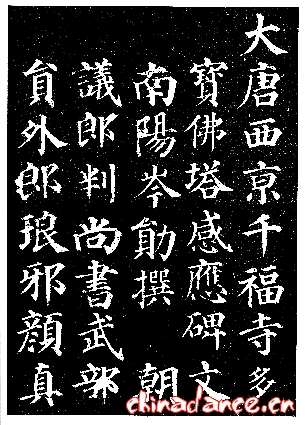 大唐西京千福寺多
寶佛塔感應碑文
南陽岑勛撰 朝
議郎判尚書武部
貟外郎琅邪顏真
chinadance.cn